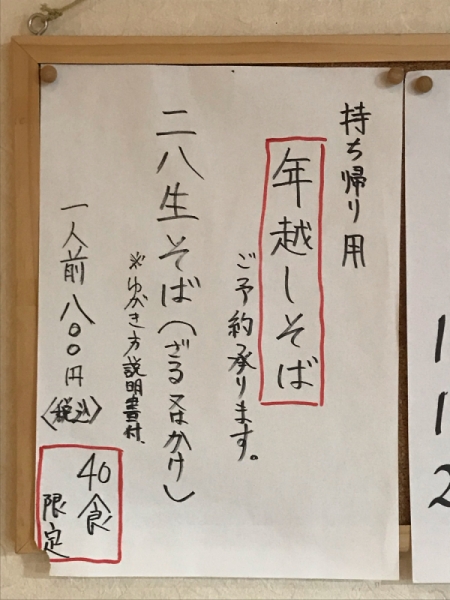 持ち帰り用
年越しそば
ご予約承ります。
二八生そば(ざる又はかけ)
※ゆがき方説明書付、
一人前八〇〇円
〈税込〉
40食
限定
1
1
2